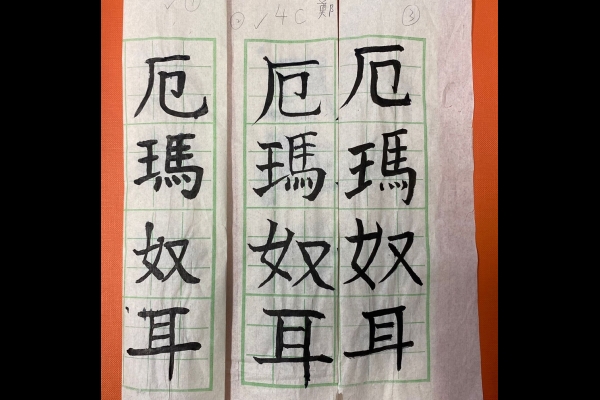 ① ✓
② ✓ 4C 鄭
③
厄瑪奴耳
厄瑪奴耳
厄瑪奴耳